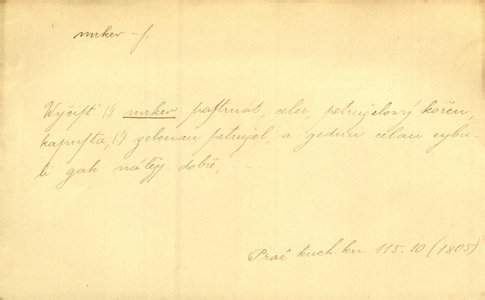 mrkev -f.
Wyčist (!) mrkev pastrnak, celer, petruzelowý kořen,
kapusta, (!) zelenau petružel, a gednu celau cybu-
li gak náležj dobře,
Prač. kuch. kn. 115. 10 (1805)